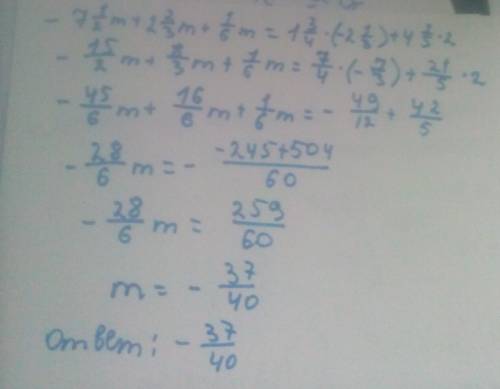 - 7 1/2 m + 2 2/3 m + 1/6 m = 1 3/4 · (-2 1/3) + 4 1/5 · 2
- 15/2 m + 8/3 m + 1/6 m = 7/4 · (- 7/3) + 21/5 · 2
- 45/6 m + 16/6 m + 1/6 m = - 49/12 + 42/5
- 28/6 m = - -245+504/60
- 28/6 m = 259/60
m = - 37/40
ответ: - 37/40